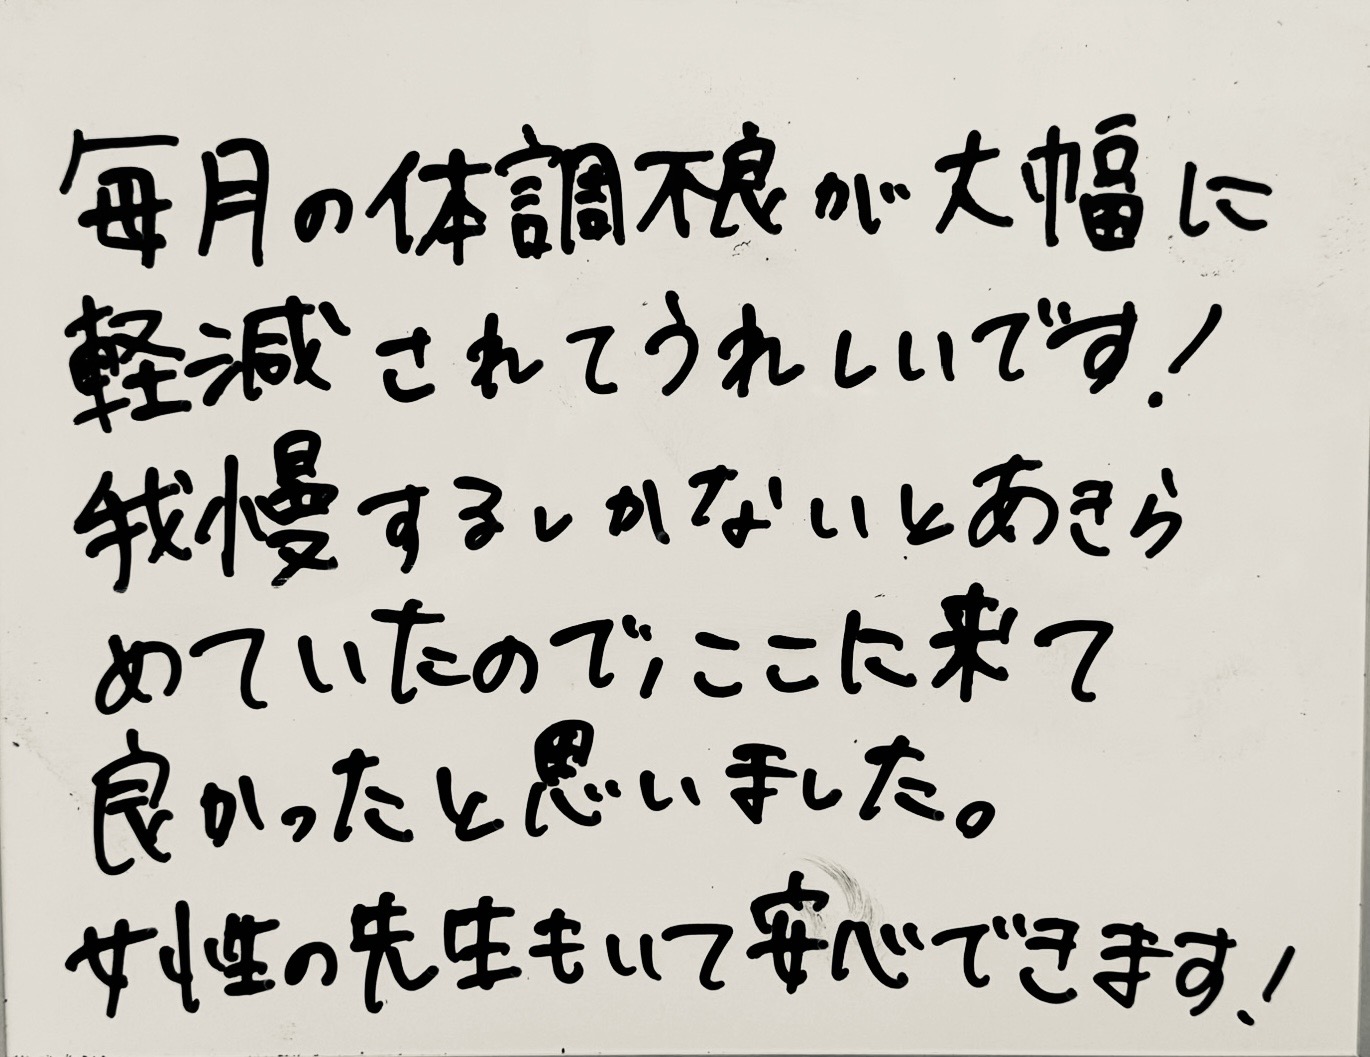 毎月の体調不良が大幅に
軽減されてうれしいです!
我慢するしかないとあきら
めていたので、ここに来て
良かったと思いました。
女性の先生もいて安心できます!